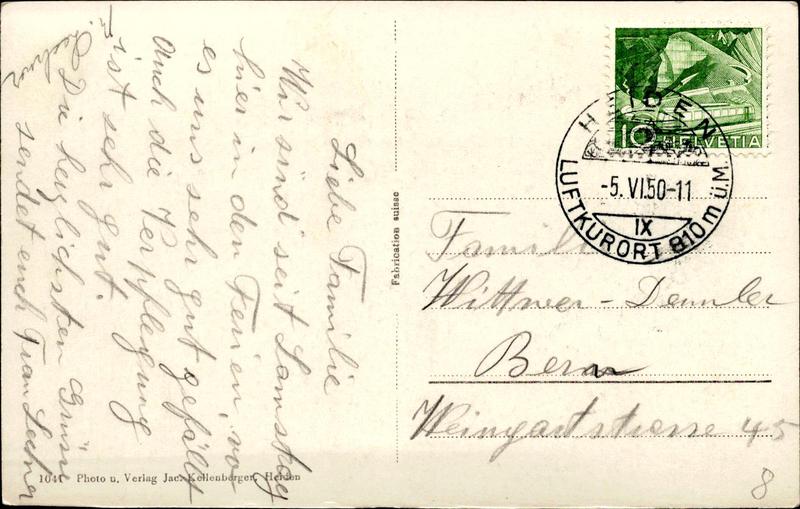 Liebe Familie
Wir sind seit Samstag
hier in den Ferien, wo
es uns sehr gut gefällt
auch die Verpflegung
ist sehr gut.
Die herzlichsten Grüsse
sendet euch Frau Lechner
1041 Photo u. Verlag Jac. Kellenberger, Heiden
Fabrication suisse
10 HELVETIA
HEIDEN
-5.VI.50-11
IX
LUFTKURORT 810 m ü.M.
Familie
Wittwer-Demmler
Bern
Weingartstrasse 45
8